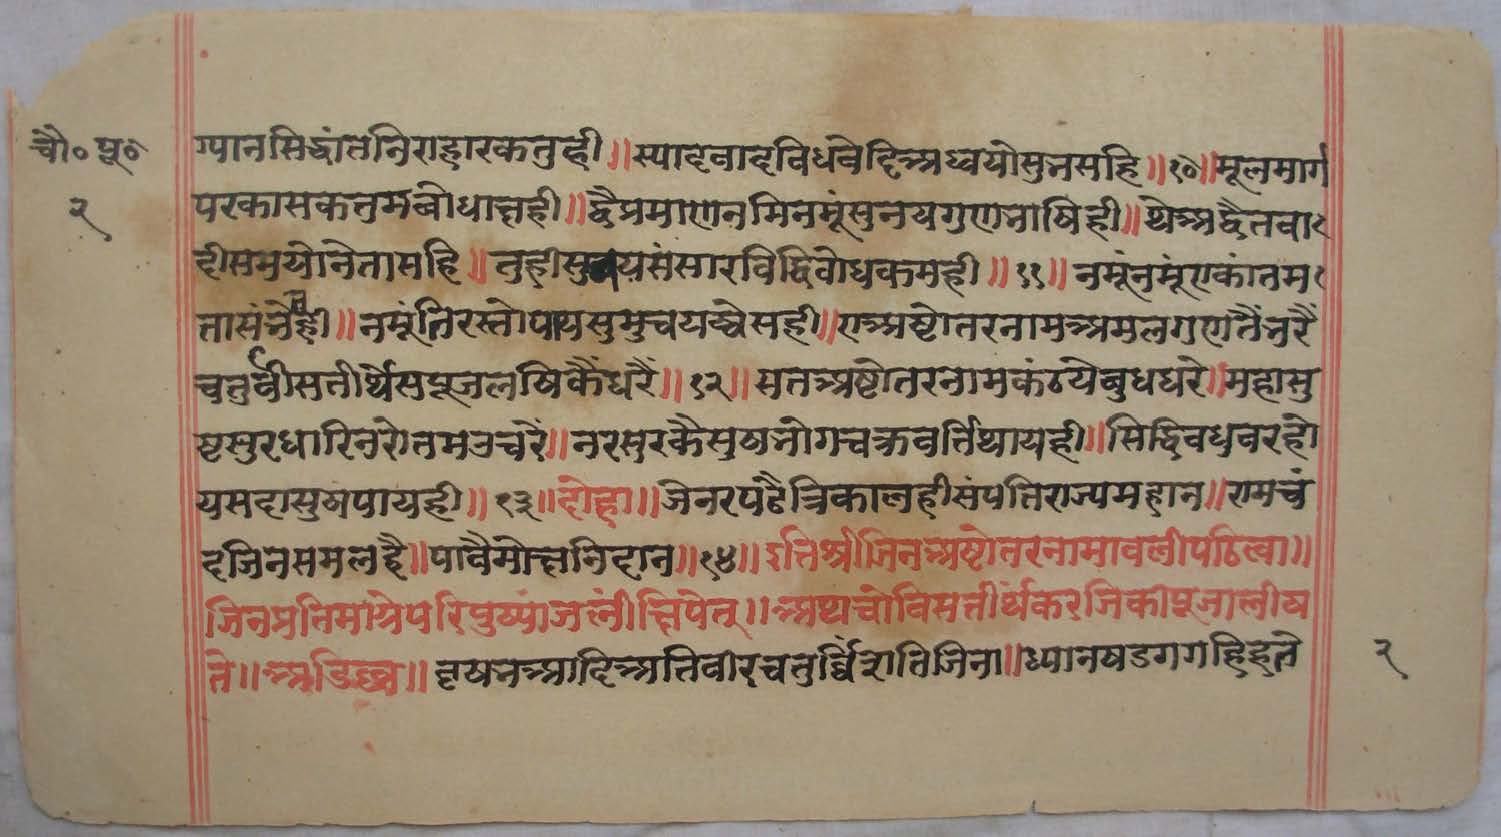 चौ० पू०
२
ग्यानसिद्धांतनिराहारकतुही॥स्यादवादविधवेदिअध्वयोसुनसहि॥१०॥मूलमार्ग
परकासकतुमबोधाक्षही॥द्वैप्रमाणनमिनमूंसुनयगुणभाषिही॥थेअद्वैतवा
दीसमुयोनेतासहि॥तुहीसु संसारविद्विबोधकमही॥११॥नमूंनमूंएकांतम
नमूंतिरस्तोपायसुमुचयच्चेसही॥एअष्टोतरनामअमलगुणतैंनरैं
चतुर्वीसतीर्थेसपूजलषिकैंधरैं॥१२॥सतअष्टोतरनामकंठयेबुधधरे॥महासु
ष्टसुरधारिनरोतमउचरैं॥नरसुरकैसुष्यभोगचक्रवर्त्तिथायही॥सिद्विवधुवरहो
यसदासुषपायही॥१३॥दोहा॥जेनरपढैत्रिकालहीसंपतिराज्यमहान॥रामचं
दजिनेसमलहै॥पावैमोक्षनिदान॥१४॥इतिश्रीजिनअष्टोतरनामावलीपठित्वा॥
जिनप्रतिमाग्रेपरिपुष्पांजलीक्षिपेत्॥अथचोविसतीर्थंकरजिकीपूजालीष्य
ते॥अडिल्ल॥वृषभआदिअतिवीरचतुर्विंशतिजिना॥ध्यानषडगगहिहते
२